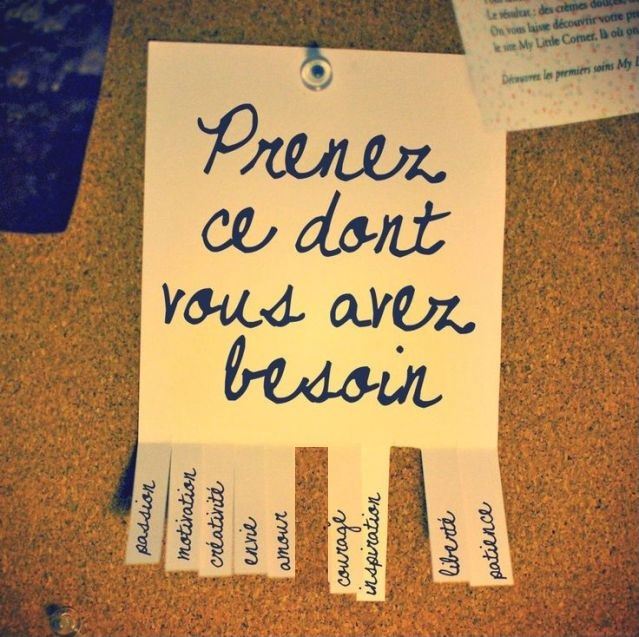 Le résultat : des crèmes douces,
On vous laisse découvrir votre
le site My Little Corner, là où on
Découvrez les premiers soins My
Prenez
ce dont
vous avez
besoin
passion
motivation
créativité
envie
amour
courage
inspiration
liberté
patience